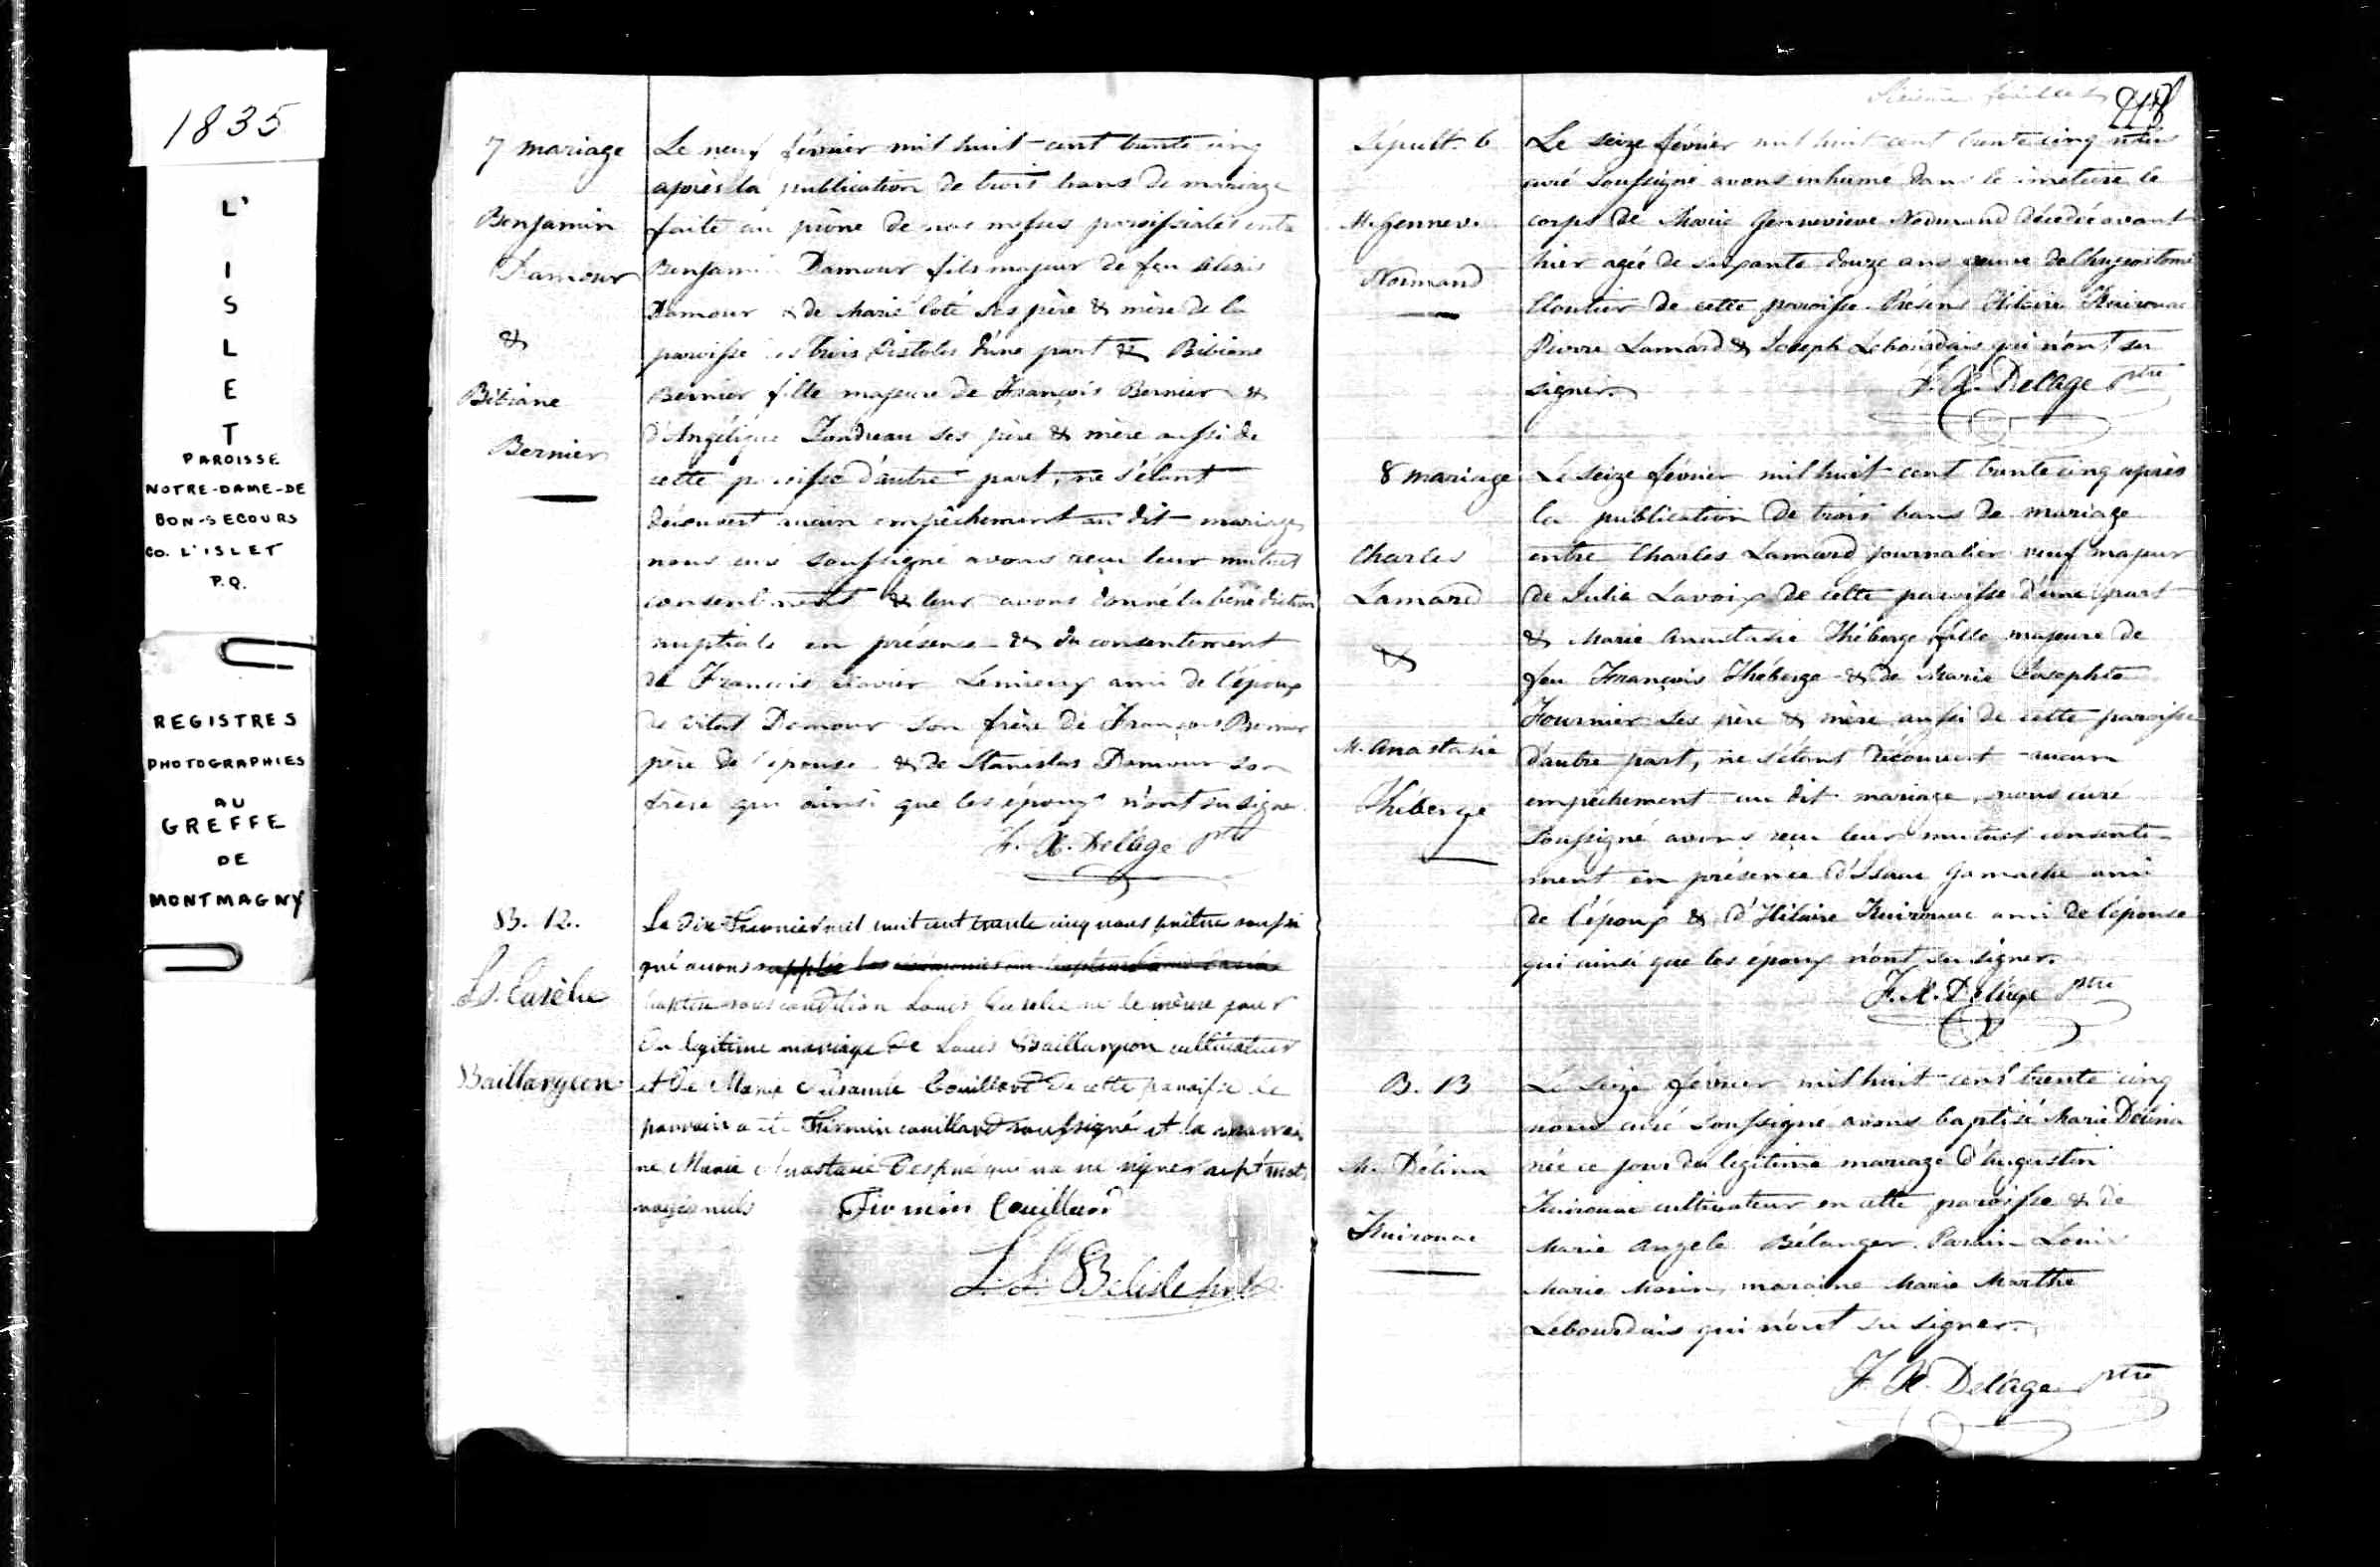 1835
L'
I
S
L
E
T
PAROISSE
NOTRE-DAME-DE
BON-SECOURS
CO. L'ISLET
P.Q.
REGISTRES
PHOTOGRAPHIES
AU
GREFFE
DE
MONTMAGNY
7 mariage
Benjamin
Damour
&
Bibiane
Bernier
Le neuf février mil huit cent trente cinq
après la publication de trois bans de mariage
faite au prône de nos messes paroissiales entre
Benjamin Damour fils majeur de feu Alexis
Damour & de Marie Coté ses père & mère de la
paroisse des trois Pistoles d'une part & Bibiane
Bernier fille majeure de François Bernier &
d'Angélique Fondreau ses père & mère aussi de
cette paroisse d'autre part, ne s'étant
découvert aucun empêchement au dit mariage
nous curé soussigné avons reçu leur mutuel
consentement & leur avons donné la bénédiction
nuptiale en présence & du consentement
de François Xavier Lemieux ami de l'époux
de Vital Damour son frère de François Bernier
père de l'épouse & de Stanislas Damour son
frère qui ainsi que les époux n'ont su signer.
F. X. Delâge ptre
B. 12.
Ls. Eusèbe
Baillargeon
Le dix Fevrier mil huit cent trente cinq nous prêtre soussi
gné avons supplée les cérémonies
baptisé sous condition Louis Eusebe né le même jour
du légitime mariage de Louis Baillargeon cultivateur
et de Marie Couillard de cette paroisse le
parrain a été Firmin Couillard soussigné et la marrai
ne Marie Anastasie Després qui n'a su signer sept mots
rayés nuls Firmin Couillard
L. L. Belisle ptre
Sépult. 6
M. Gennev.
Normand
Le seize février mil huit cent trente cinq nous
curé soussigné avons inhumé dans le cimetière le
corps de Marie Genneviève Normand décédée avant
hier agée de soixante douze ans veuve de Chrysostome
Cloutier de cette paroisse. Présens Hilaire Kuirouac
Pierre Lamard & Joseph Lebourdais qui n'ont su
signer.
F. X. Delâge ptre
8 mariage
Charles
Lamard
&
M. Anastasie
Théberge
Le seize février mil huit cent trente cinq après
la publication de trois bans de mariage
entre Charles Lamard journalier veuf majeur
de Julie Lavoix de cette paroisse d'une part
& Marie Anastasie Théberge fille majeure de
feu François Théberge & de Marie Josephte
Fournier ses père & mère aussi de cette paroisse
d'autre part, ne s'étant découvert aucun
empêchement au dit mariage, nous curé
soussigné avons reçu leur mutuel consente-
ment en présence d'Isaac Gamache ami
de l'époux & d'Hilaire Kuirouac ami de l'épouse
qui ainsi que les époux n'ont su signer.
F. X. Delâge ptre
B. 13
M. Délina
Kuirouac
Le seize février mil huit cent trente cinq
nous curé soussigné avons baptisé Marie Délina
née ce jour du légitime mariage d'Augustin
Kuirouac cultivateur en cette paroisse & de
Marie Angele Bélanger. Parain Louis
Marie Morin, maraine Marie Marthe
Lebourdais qui n'ont su signer.
F. X. Delâge ptre